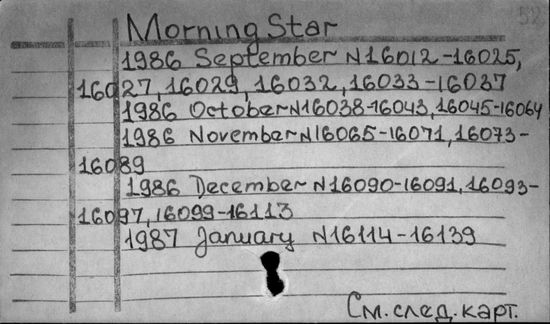 52
Morning Star
1986 September N16012-16025,
16027, 16029, 16032, 16033-16037
1986 October N16038-16043, 16045-16064
1986 November N16065-16071, 16073-
16089
1986 December N16090-16091, 16093-
16097, 16099-16113
1987 January N16114-16139
См. след. карт.